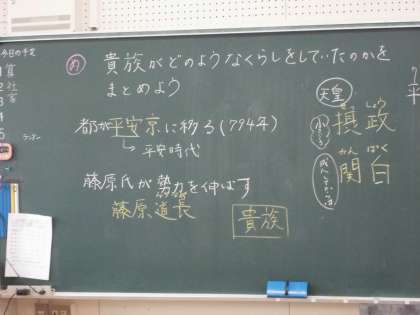 今日の予定
1 算
2 社
3
4
5
め 貴族がどのようなくらしをしていたのかを
まとめよう
都が平安京に移る(794年)
↳ 平安時代
藤原氏が勢力を伸ばす
藤原道長
貴族
天皇
せっ しょう
摂政
かん ぱく
関白
平